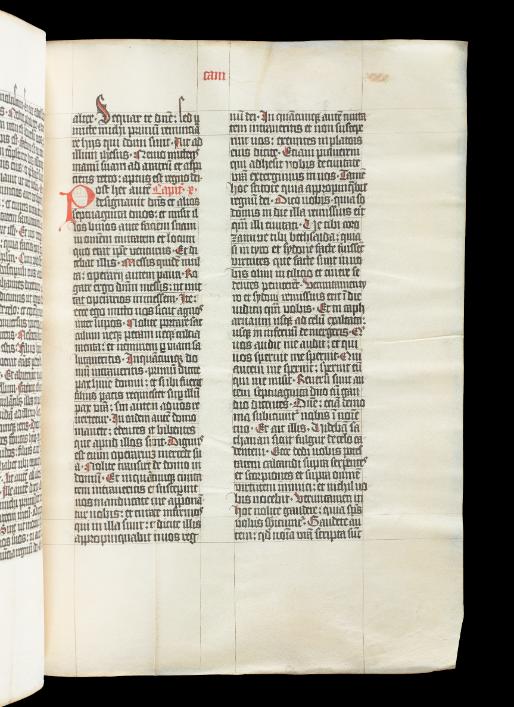 cam
alter · Sequar te dñe : sed ꝑ
mitte michi primū renunciā
re hijs qui domi sunt · Ait ad
illum ihesus · Nemo mittēs
manū suam ad aratrū et aspi
ciens retro : aptus est regno dei ·
Post hec autē Capit̃ · x ·
designauit dñs et alios
septuaginta duos : et misit il
los binos ante faciem suam
in omnem ciuitatem et locum
quo erat ip̃e venturus · Et di
cebat illis · Messis quidē mul
ta : operarij autem pauci · Ro
gate ergo dñm messis : ut mit
tat operarios in messem · Ite :
ecce ego mitto vos sicut agnos
inter lupos · Nolite portare sac
culum neqꝫ peram neqꝫ calcia
menta : et neminem ꝑ viam sa
lutaueritis · In quācūqꝫ do
mū intraueritis · primū dicite
pax huic domui : et si ibi fuerit
filius pacis requiescet suꝑ illū
pax vr̃a : sin autem ad vos re
uertetur · In eadem autē domo
manete : edentes et bibentes
que apud illos sunt · Dignus
est enim operarius mercede su
a · Nolite transire de domo in
domū · Et in quācūqꝫ ciuita
tem intraueritis et susceperint
vos manducate que apponū
tur vobis : et curate infirmos
qui in illa sunt : et dicite illis
appropinquabit in vos reg
nū dei · In quācūqꝫ autē ciuita
tem intraueritis et non suscepe
rint vos : exeuntes in plateas
eius dicite · Etiam puluerem
qui adhesit nobis de ciuitate
vr̃a extergimus in vos · Tamē
hoc scitote quia appropinquabit
regnū dei · Dico vobis · quia so
domis in die illa remissius erit
qm̄ illi ciuitati · Ve tibi coro
zaim ve tibi bethsaida : quia
si in tyro et sydone facte fuissēt
virtutes que facte sunt in vo
bis olim in cilicio et cinere se
dentes peniterēt · Verumptamē ty
ro et sydoni remissius erit ī die
iudicij qm̄ vobis · Et tu caph
arnaum usqꝫ ad celū exaltata :
usqꝫ in infernū demergeris · Qui
vos audit me audit : et qui
vos spernit me spernit · Qui
autem me spernit : spernit eū
qui me misit · Reuersi sunt au
tem septuaginta duo cū gau
dio dicentes · Dñe : etiā demo
nia subiciunt̃ nobis ī noīe
tuo · Et ait illis · Videbā sa
thanan sicut fulgur de celo ca
dentem · Ecce dedi vobis potes
tatem calcandi supra serpentes
et scorpiones et supra omnē
virtutem inimici : et nichil vo
bis nocebit · Verumptamen in
hoc nolite gaudere : quia sp̃s
vobis subiciunt̃ · Gaudete au
tem : qd̃ noīa vr̃a scripta sūt